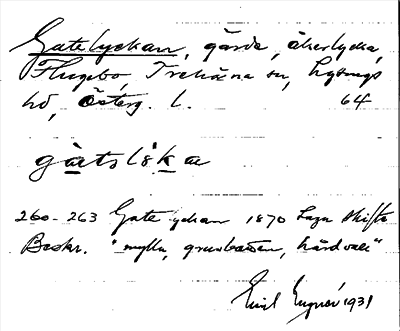 Gatelyckan, gärde, åkerlycka,
Flugebo, Trehörna sn, Lysings
hd, Österg. l. 64
gàtslẙka
260-263 Gatelyckan 1870 Laga skifte
Beskr. "mylla, grusbotten, hårdvall"
Emil 1931